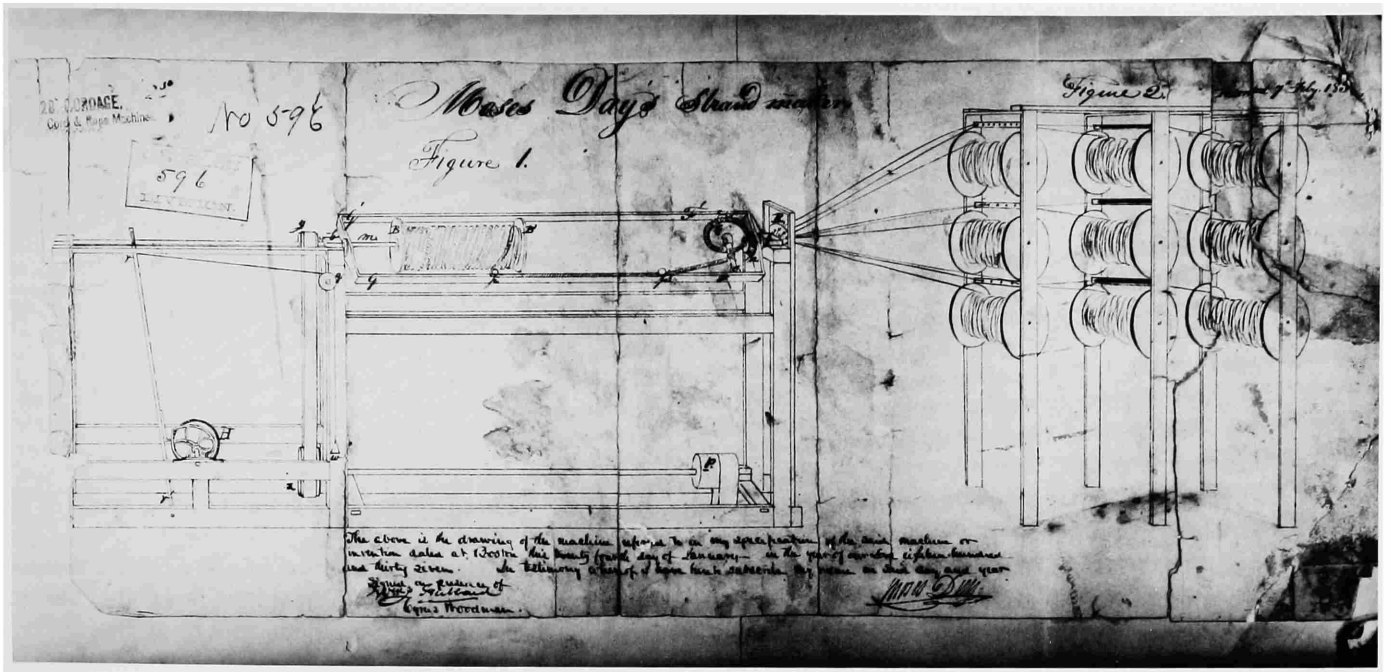 28. CORDAGE,
Cord & Rope Machines
No 596
596
Moses Day's Strand maker,
Figure 1.
Figure 2.
7 Feby. 183
The above is the drawing of the machine referred to in my specification of the said machine or
invention dated at Boston this twenty fourth day of January in the year of our Lord eighteen hundred
and thirty seven. In testimony whereof I have hereto subscribed my name on said day and year
Signed in presence of
Hubbard
Cyrus Woodman.
Moses Day